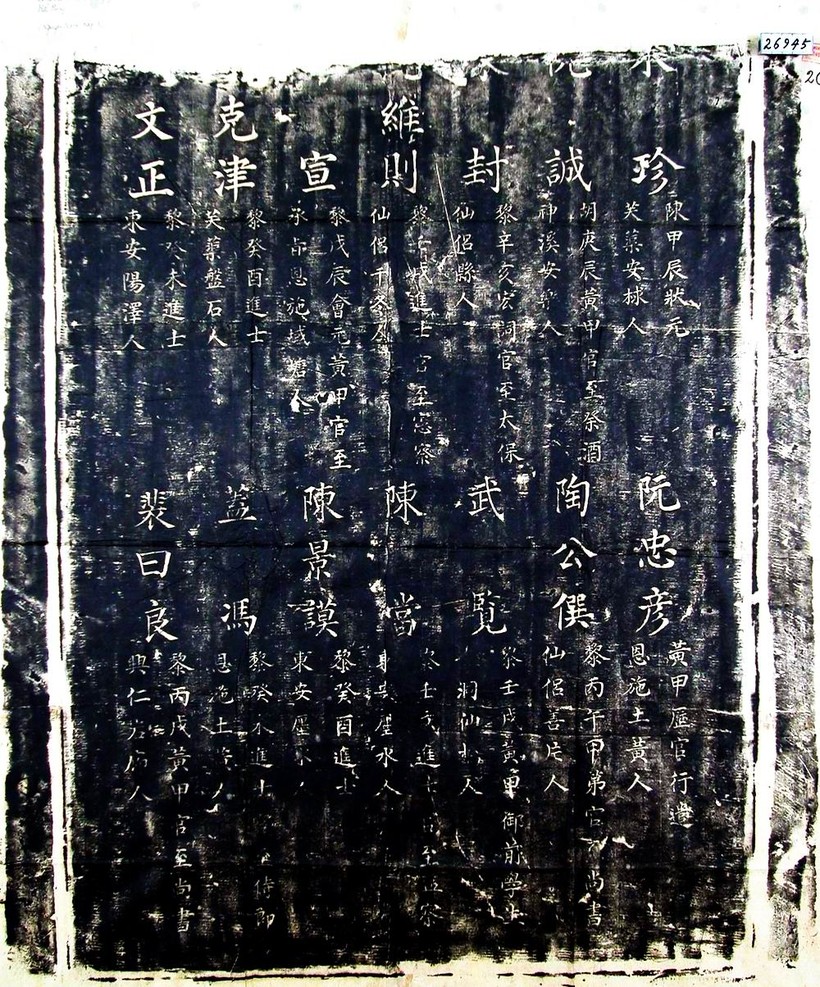 26945
珍
陳甲辰狀元
芙蕖安人
誠
胡庚辰黃甲官至祭酒
神溪安人
封
黎辛亥宏詞官至太保
仙侶縣人
維則
黎壬戌進士官至憲察
仙侶千冬人
宣
黎戊辰會元黃甲官至
承恩施城塘人
克津
黎癸酉進士
芙蕖盤石人
文正
黎癸未進士
東安陽澤人
阮忠彥
黃甲歷官行遣
恩施土黃人
陶公僎
黎丙午甲第官尚書
仙侶善片人
武覽
黎壬戌黃甲御前學士
洞仙人
陳當
壬戌進士至察
東安壓水人
陳景謨
黎癸酉進士
東安壓人
馮
黎癸未進士侍郎
恩施土人
裴曰良
黎丙戌黃甲官至尚書
興仁人